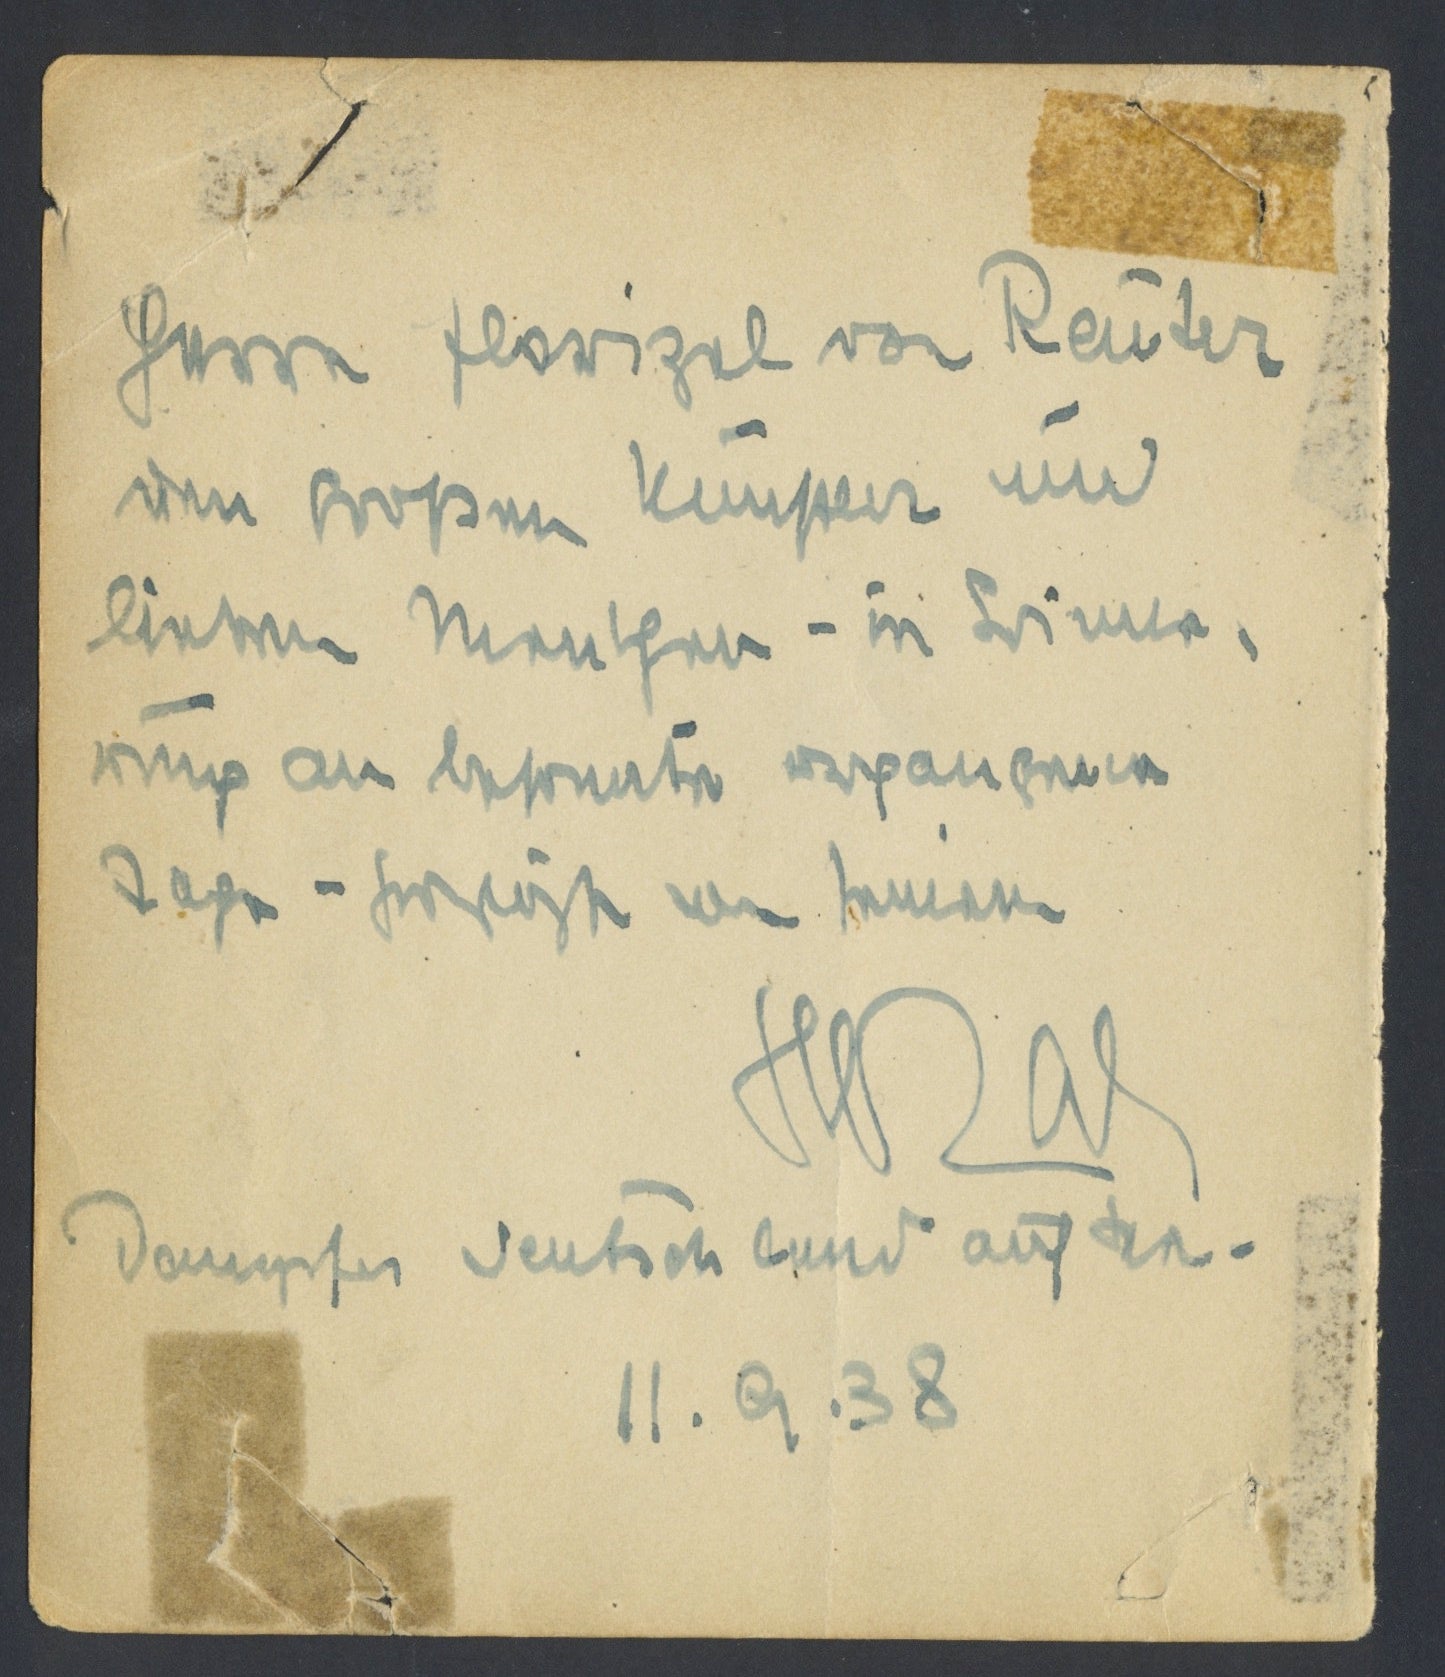 Herrn Florizel von Reuter
dem großen Künstler und
lieben Menschen - in Erinne-
rung an besonnte vergangene
Tage - herzlichst von seinem
Dampfer Deutschland auf See -
11.9.38